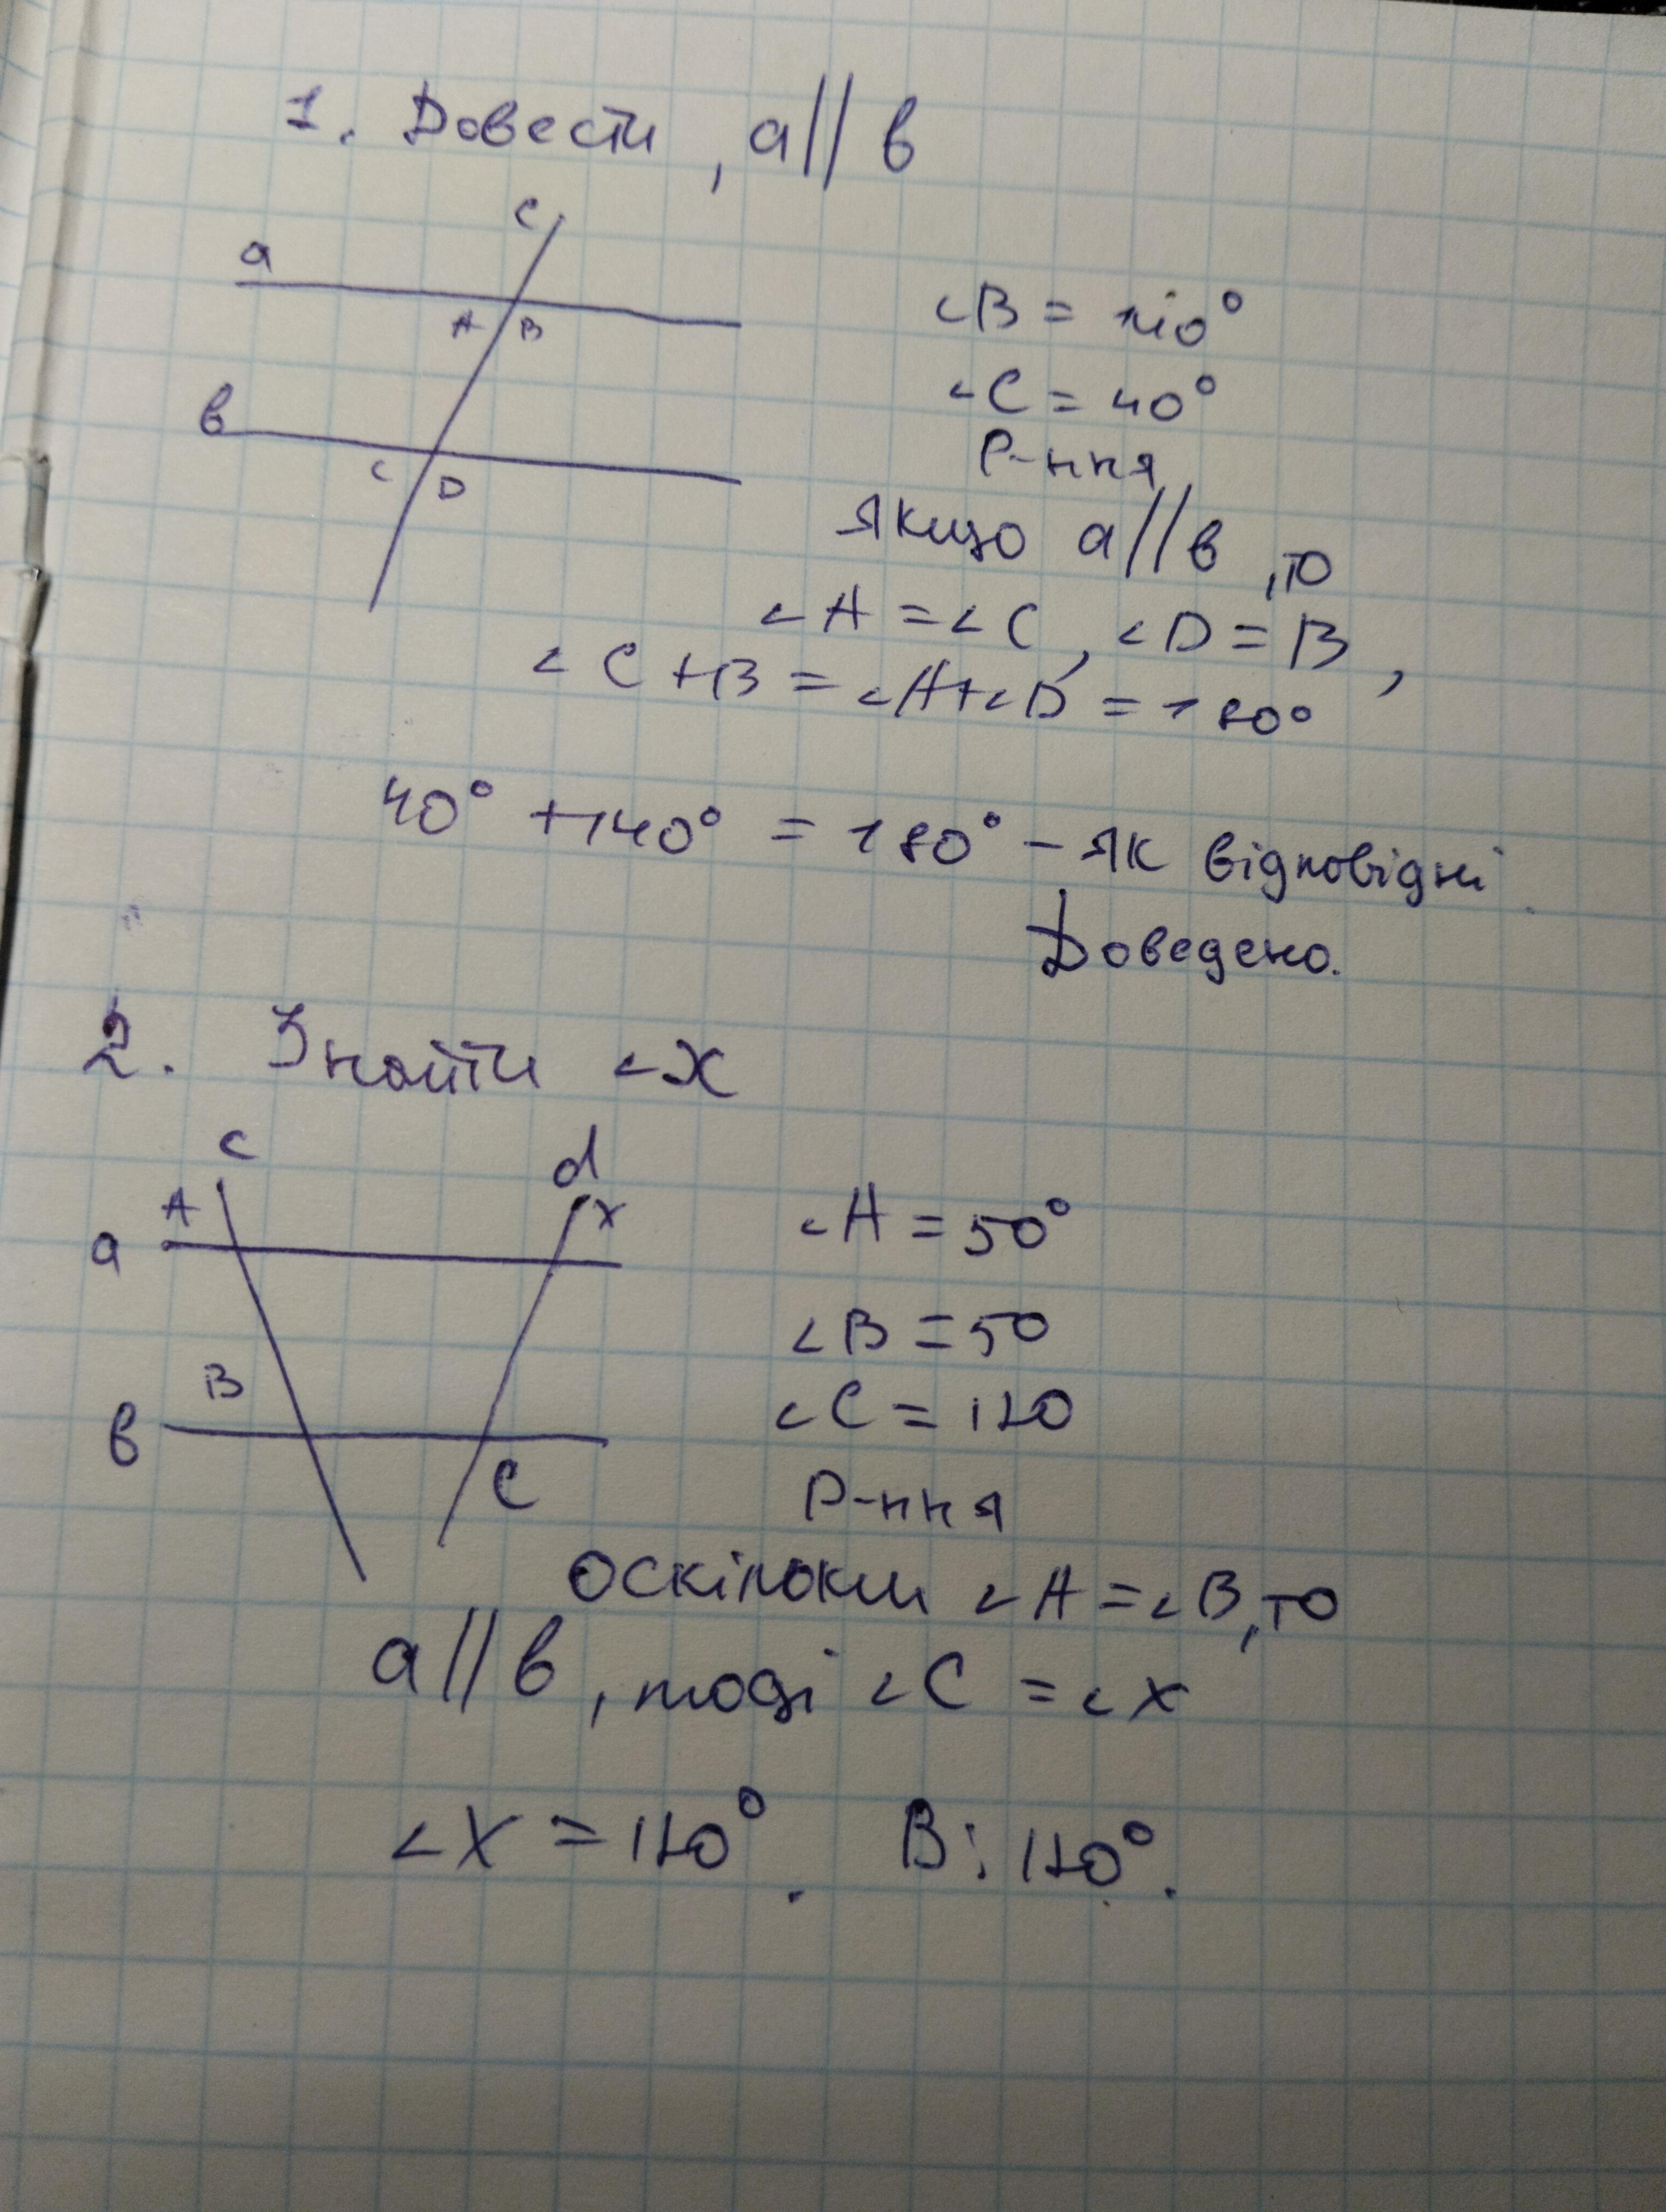 1. Довести, a∥в
c
a
A B
в
C D
∠B = 140°
∠C = 40°
Р-ння
Якщо a∥в, то
∠A = ∠C, ∠D = B,
∠C + B = ∠A + ∠D = 180°
40° + 140° = 180° – як відповідні
Доведено.
2. Знайти ∠x
c d
A x
a
B
в
C
∠A = 50°
∠B = 50
∠C = 120
Р-ння
Оскільки ∠A = ∠B, то
a∥в, тоді ∠C = ∠x
∠X = 120°. В: 120°.